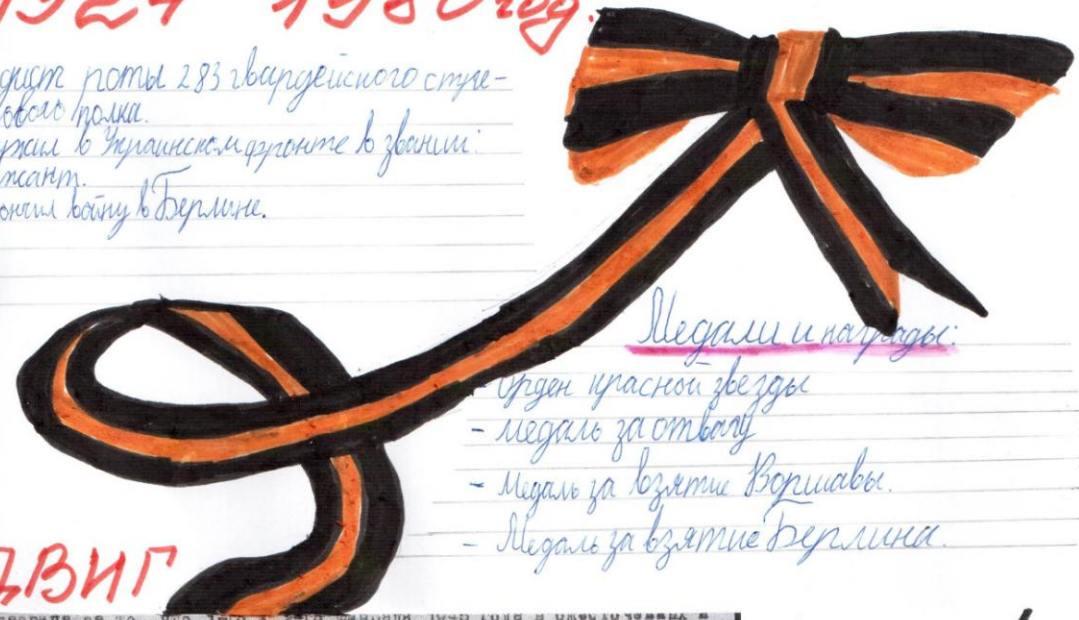 1924 - 1980 год.
дист роты 283 гвардейского стре-
ового полка.
ужил в Украинском фронте в звании:
жант.
ончил войну в Берлине.
Медали и награды:
- Орден красной звезды
- медаль за отвагу
- Медаль за взятие Воршавы.
- Медаль за взятие Берлина.
ДВИГ